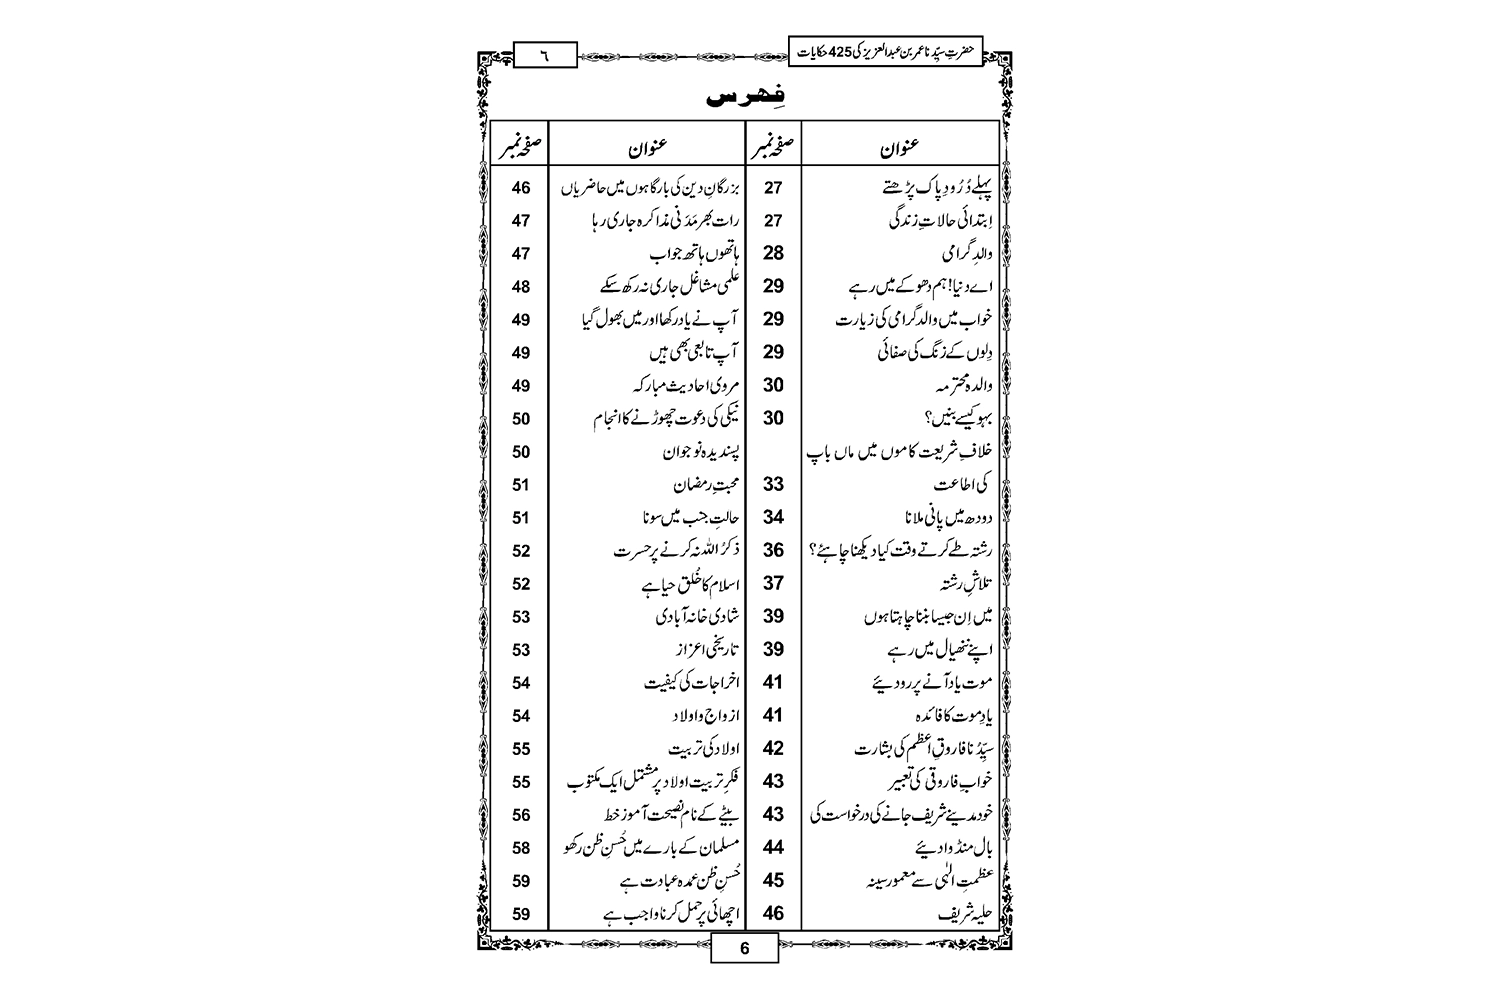 حضرتِ سیِّدنا عمر بن عبدالعزیز کی 425 حکایات
٦
فِهرس
عنوان صفحہ نمبر عنوان صفحہ نمبر
پہلے دُرُودِ پاک پڑھتے 27 بزرگانِ دین کی بارگاہوں میں حاضریاں 46
اِبتدائی حالاتِ زندگی 27 رات بھر مَدَنی مذاکرہ جاری رہا 47
والدِ گرامی 28 ہاتھوں ہاتھ جواب 47
اے دنیا! ہم دھوکے میں رہے 29 علمی مشاغل جاری نہ رکھ سکے 48
خواب میں والد گرامی کی زیارت 29 آپ نے یاد رکھا اور میں بھول گیا 49
دِلوں کے زنگ کی صفائی 29 آپ تابعی بھی ہیں 49
والدہ محترمہ 30 مروی احادیث مبارکہ 49
بہو کیسے بنیں؟ 30 نیکی کی دعوت چھوڑنے کا انجام 50
خلافِ شریعت کاموں میں ماں باپ پسندیدہ نوجوان 50
کی اطاعت 33 محبتِ رمضان 51
دودھ میں پانی ملانا 34 حالتِ جنب میں سونا 51
رشتہ طے کرتے وقت کیا دیکھنا چاہئے؟ 36 ذکرُ اللّٰہ نہ کرنے پر حسرت 52
تلاشِ رشتہ 37 اسلام کا خُلق حیا ہے 52
میں اِن جیسا بننا چاہتا ہوں 39 شادی خانہ آبادی 53
اپنے ننھیال میں رہے 39 تاریخی اعزاز 53
موت یاد آنے پر رو دیئے 41 اخراجات کی کیفیت 54
یادِ موت کا فائدہ 41 ازواج و اولاد 54
سیِّدُنا فاروقِ اعظم کی بشارت 42 اولاد کی تربیت 55
خوابِ فاروقی کی تعبیر 43 فکرِ تربیت اولاد پر مشتمل ایک مکتوب 55
خود مدینے شریف جانے کی درخواست کی 43 بیٹے کے نام نصیحت آموز خط 56
بال منڈوا دیئے 44 مسلمان کے بارے میں حُسنِ ظن رکھو 58
عظمتِ الٰہی سے معمور سینہ 45 حُسنِ ظن عمدہ عبادت ہے 59
حلیہ شریف 46 اچھائی پر حمل کرنا واجب ہے 59
6